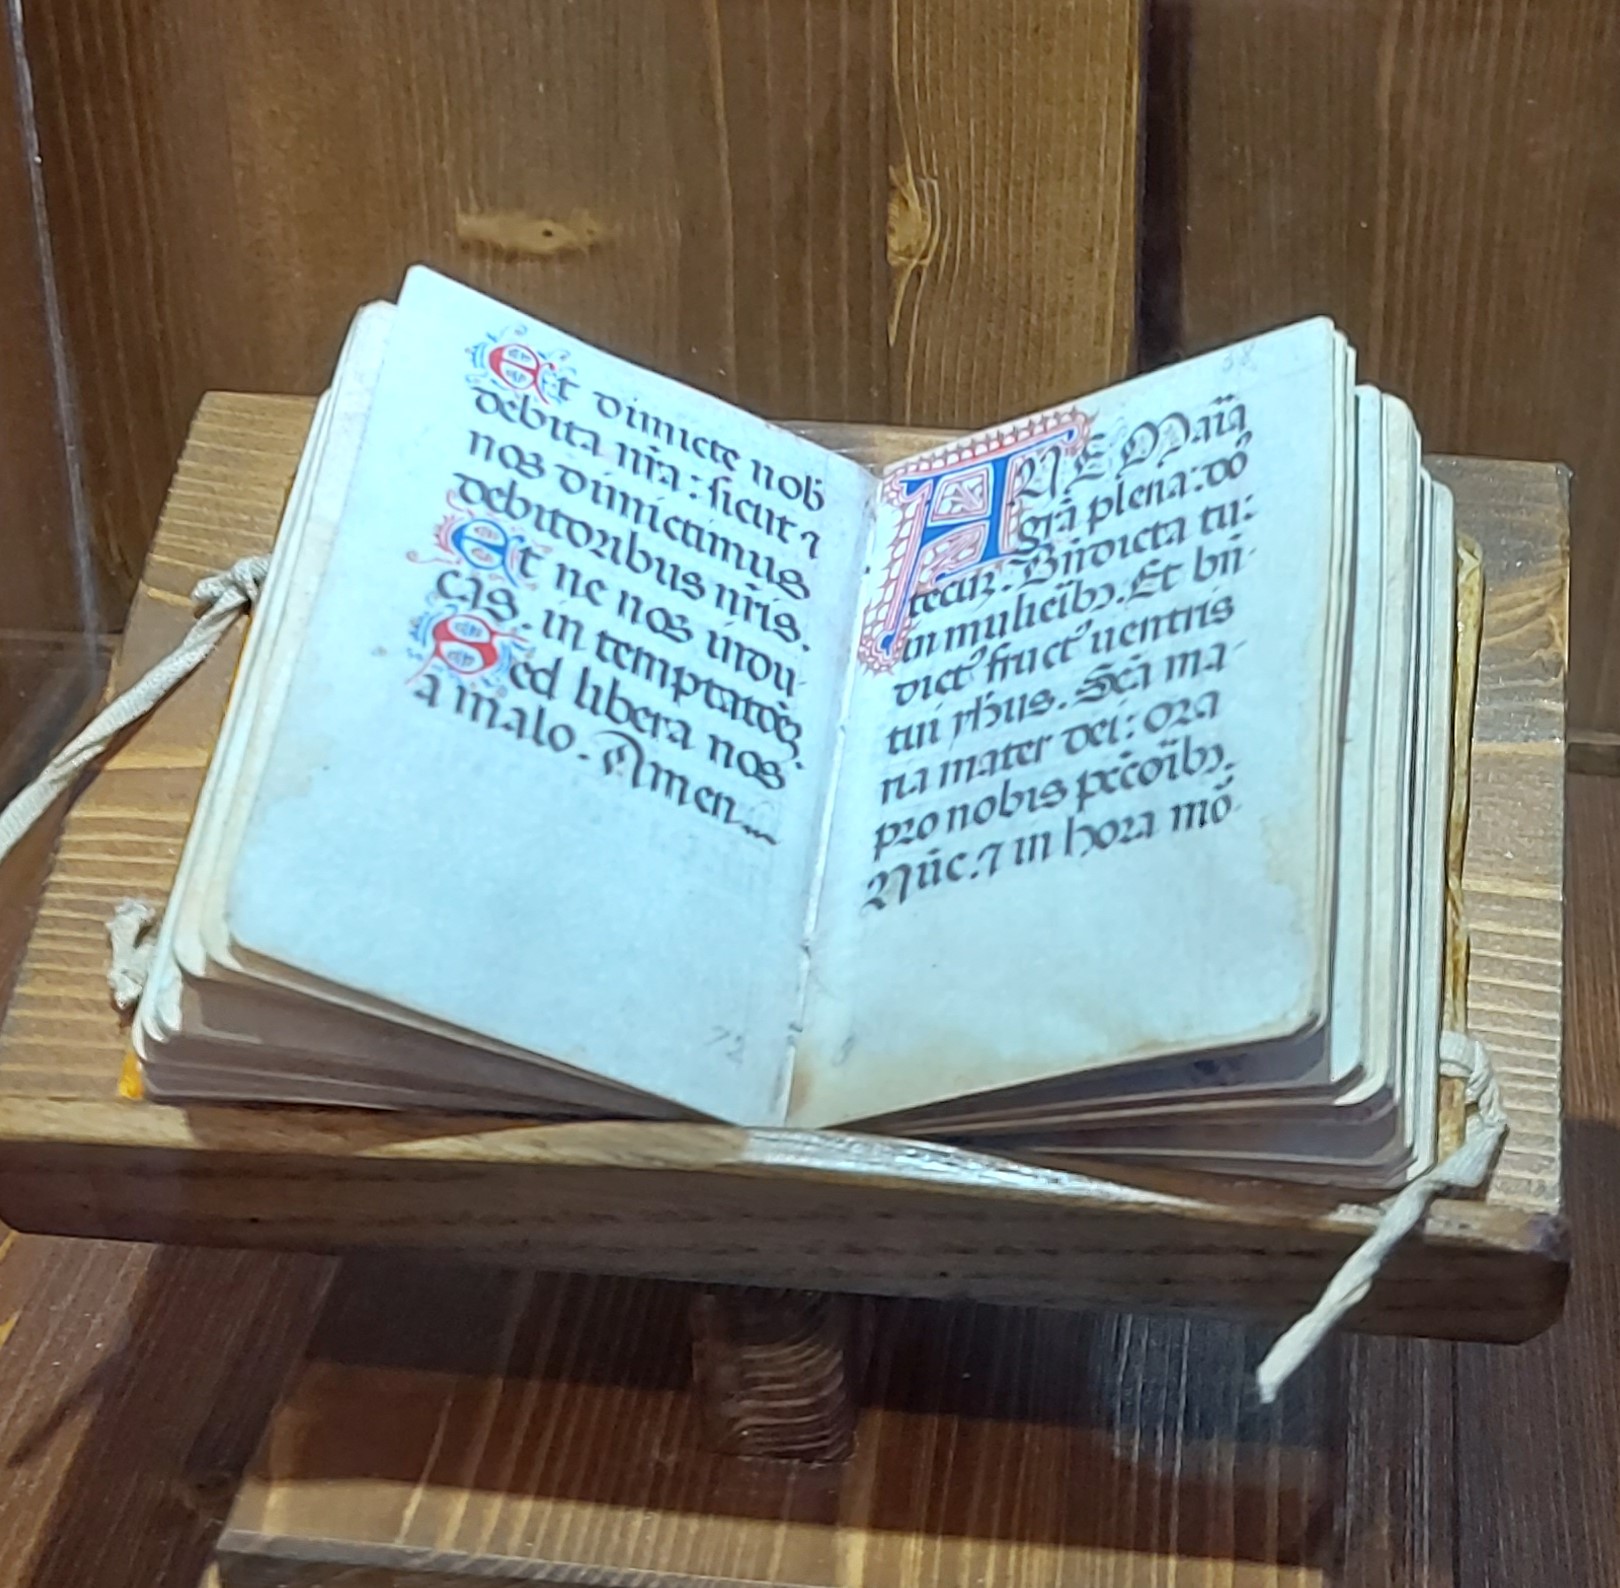 Et dimicte nob̄
debita nr̄a: sicut ⁊
nos dimictimus
debitoribus nr̄is.
Et ne nos indu
cas. in temptatōeʒ
Sed libera nos
a malo. Amen
72
38
AVE Maria
gr̄a plena: dō
tecuʒ. Bn̄dicta tu:
in mulieribꝫ. Et bn̄
dictꝰ fructꝰ uentris
tui yh̄us. Sc̄a ma
ria mater dei: ora
pro nobis pc̄c̄oribꝫ.
Nūc. ⁊ in hora mō